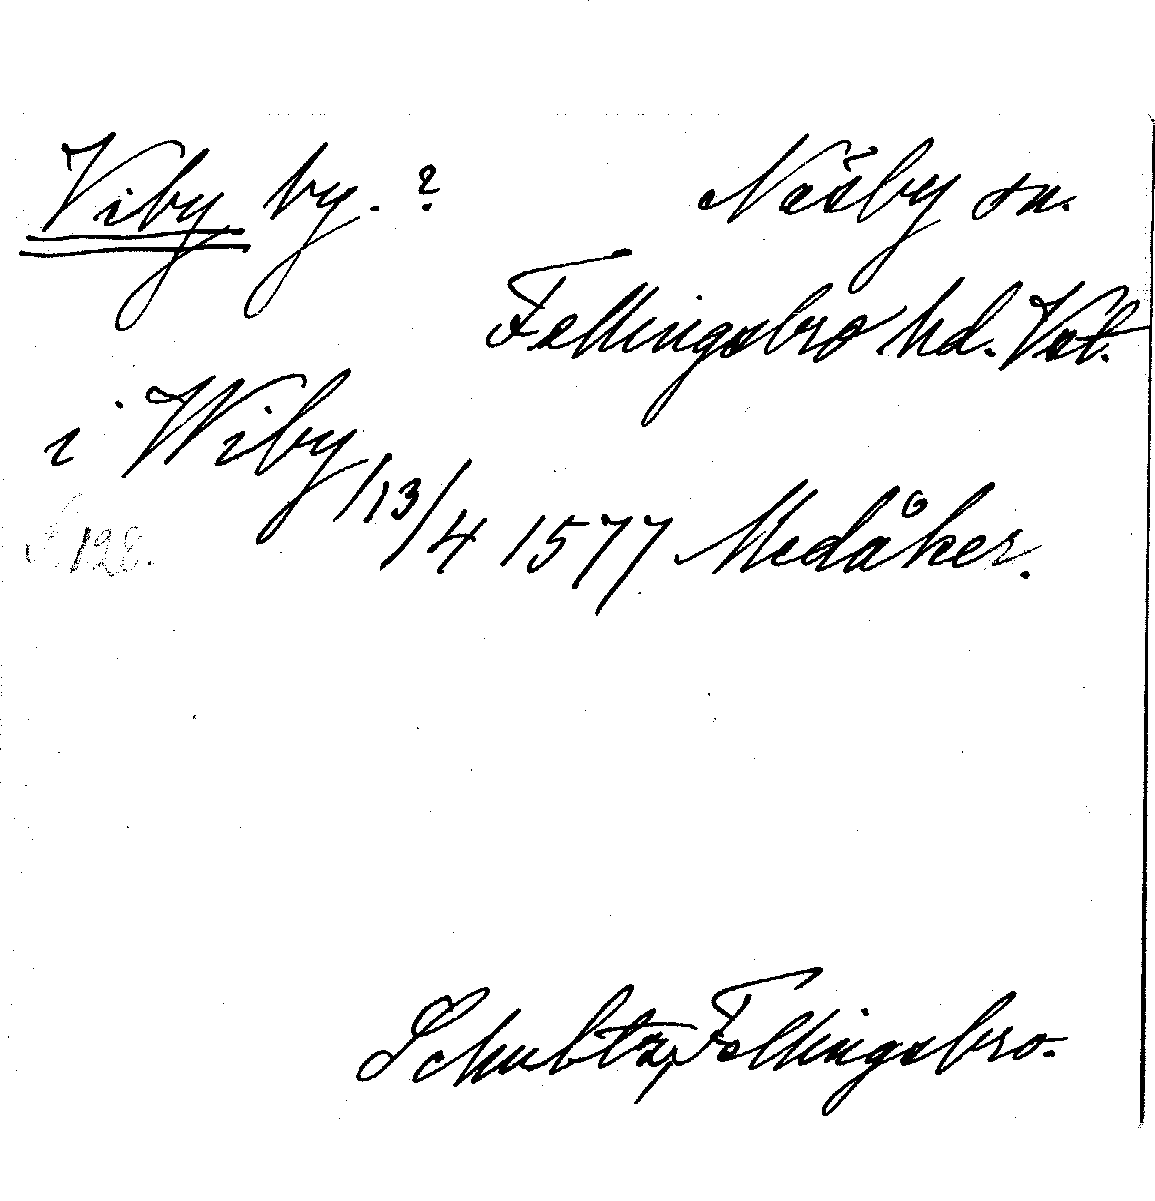 Viby by. ? Näsby sn.
Fellingsbro hd. Vstl.
i Wiby 13/4 1577 Medåker.
s. 128.
Schultz, Fellingsbro.